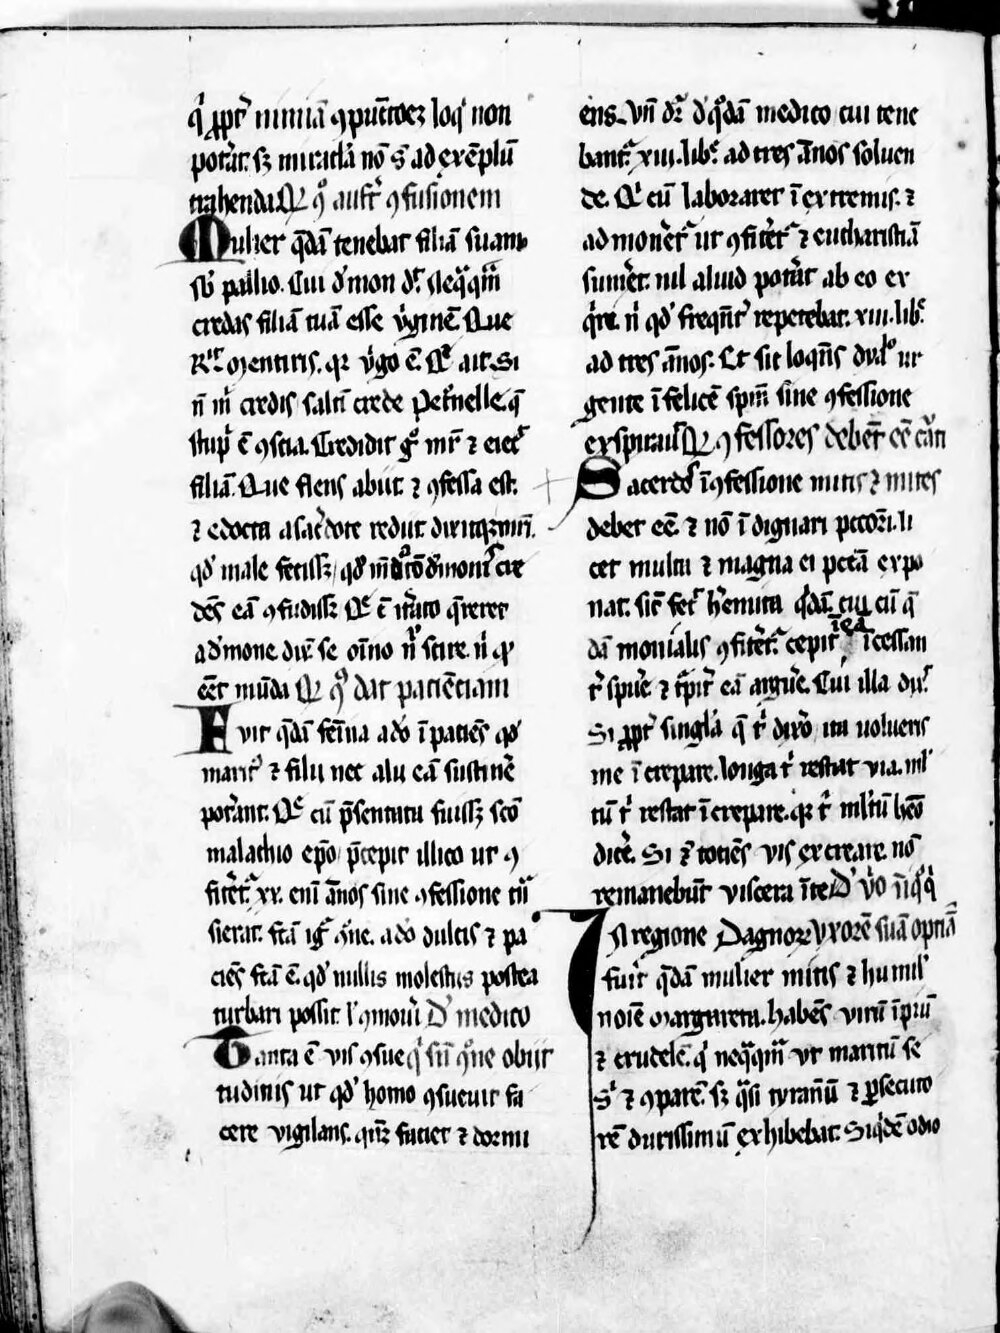 q̄ ꝓpt̄ nimiā ꝯpūctōeꝫ loq̄ non
potāt. sꝫ miracl̄a nō s̄t ad exēplū
trahenda Qͩ ꝯº aufert ꝯfusionem
Mulier q̄dā tenebat filiā suam
sb̄ pallio. Cui d̄mon dr̄. Neqͣqͣm̄
credas filiā tuā esse v̄ginē. Que
Rt̄. Mentiris. qꝛ v̄go ē. Qͥ ait. Si
n̄ m̄ credis saltī crede Pet̄nelle. q̄
stup̄ ē ꝯscia. Credidit gͦ mr̄ ⁊ eiec̄
filiā. Que flens abiit. ⁊ ꝯfessa est.
⁊ edocta a sac̄dote rediit dixitqꝫ mr̄i.
qd̄ male fecissꝫ qd̄ m̄dicō d̄moni cre
dēs eā ꝯfudissꝫ Qͥ ē it̄ato q̄reret
a d̄mone dix̄ se oīno n̄ scire. n̄ qd̄
eēt mūda Qͩ ꝯº dat pacienciam
Fuit q̄dā femīa adō īpaciēs qd̄
marit᷑ ⁊ filii nec alii eā sustinē
potānt. Qͥ cū p̄sentata fuissꝫ scō
malachio ep̄o p̄cepit illico ut ꝯ
fitēt᷑. xx. enī ānos sine ꝯfessione t̄n
sierat. fc̄ā igͥ ꝯͦne. adō dulcis ⁊ pa
ciēs fc̄ā ē. qd̄ nullis molestiis postea
turbari possit. l̓ ꝯmoūi D̓ medico
Tanta ē vis ꝯsue q̄ sn̄t ꝯͦne obiit
tudinis ut qd̄ homo ꝯsueuit fa
cere vigilans. qn̄ꝫ faciet ⁊ dormi
ens. Vn̄ dr̄ d̓ qͦdā medico cui tene
bant᷑ xiii. lib᷑. ad tres ānos soluen
de. Qͥ cū laboraret ī extremis. ⁊
admonēt᷑ ut ꝯfitēt᷑ ⁊ eucharistiā
sumēt. nil aliud potāt ab eo ex
q̄ri. n̄ qd̄ freqn̄t᷑ repetebat. xiii. lib᷑.
ad tres ānos. Et sic loqn̄s dyabͦ ur
gente īfelicē spm̄ sine ꝯfessione
exspirauit Qͩ ꝯfessores debēt eē cauti
Sacerdos ī ꝯfessione mitis ⁊ mites
debet eē. ⁊ nō īdignari pccōri. li
cet multa ⁊ magna ei pctā expo
nat. sic̄ fec̄ hēmita q̄dā cui cū q̄
dā monialis ꝯfitēt᷑ cepit iea īcessan
t᷑ spūe. ⁊ t̄pit̄ eā argūe. Cui illa dix̄.
Si ꝓpt̄ singl̄a q̄ t̄ dixō ita volueris
me īcrepare. longa t̄ restat via. ml̄
tū t̄ restat īcrepare. qꝛ t̄ ml̄tū hēo
dicē. Si ⁊ totiēs vis excreare. nō
remanebūt viscera īte D̓ v̄o n̄ q̄q̄
Il regione Dagnoꝝ vxorē suā optiā
fuit q̄dā mulier mitis ⁊ humil̓
noīe Margareta. habēs virū īpiū
⁊ crudelē. q̄ neqͣqͣm̄ ut maritū se
s̄ ⁊ ꝯparē. sꝫ qͣsi tyrannū ⁊ ꝑsecuto
rē durissimū exhibebat. Siqͥdē odio